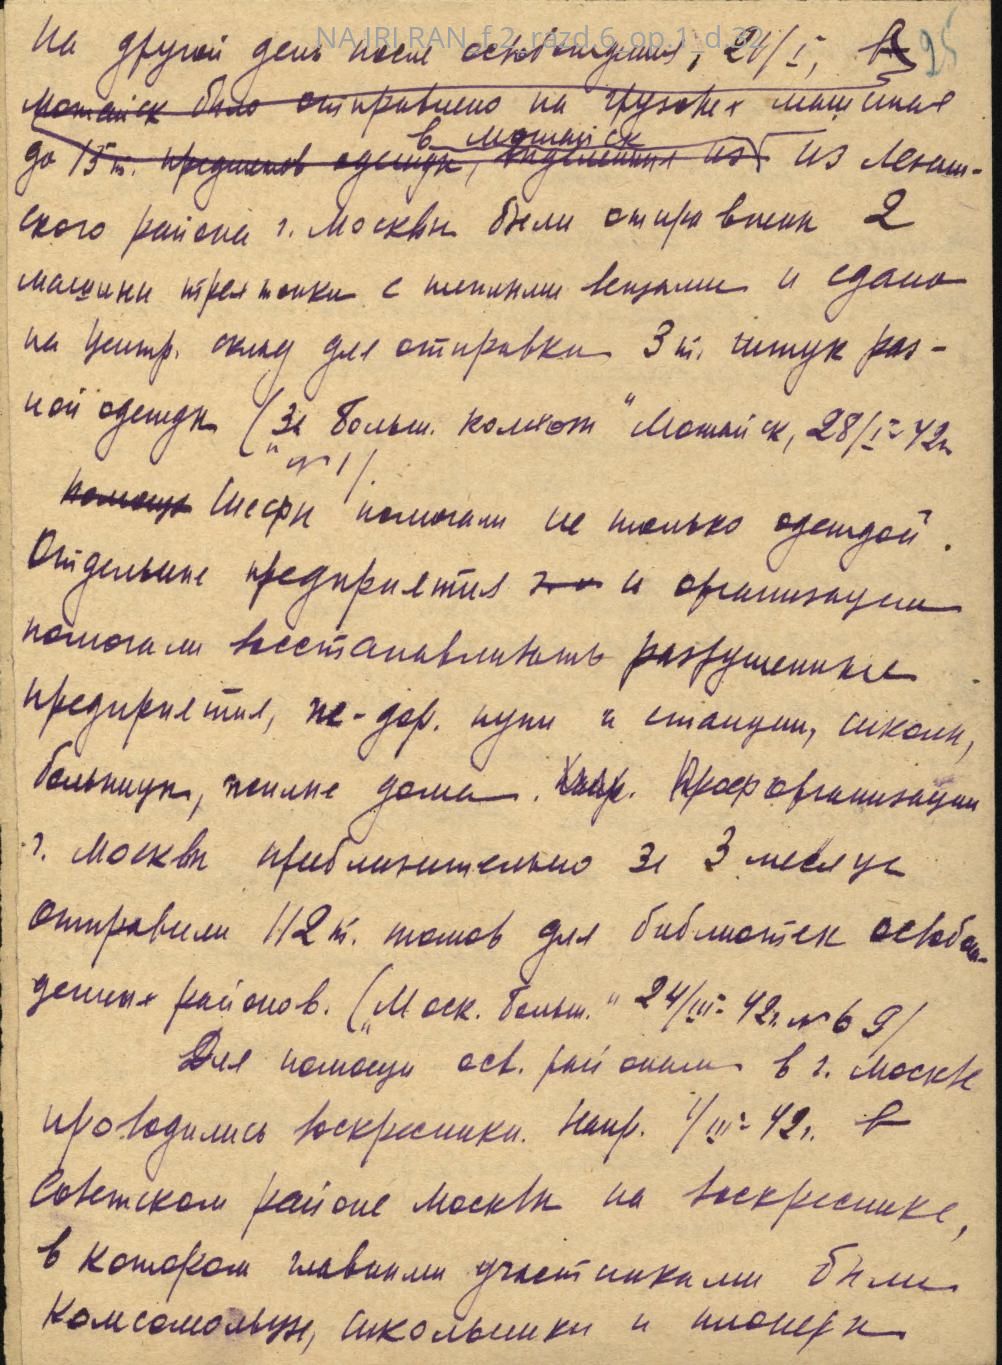 NA IRI RAN_f.2_razd.6_op.1_d.32
95
На другой день после освобождения, 21/I, в
Можайск было отправлено на грузовых машинах
в Можайск
до 15 т. предметов одежды, из Ленин-
ского района г. Москвы были отправлены 2
машины трехтонки с теплыми вещами и сдано
на центр. склад для отправки 3 т. штук раз-
ной одежды ("За больш. колхоз" Можайск, 28/I-42 г.
№ 1/.
помощь Шефы помогали не только одеждой.
Отдельные предприятия и организации
помогали восстанавливать разрушенные
предприятия, же-дор. пути и станции, школы,
больницы, жилые дома. Проф организации
г. Москвы приблизительно за 3 месяца
отправили 112 т. томов для библиотек освобож-
денных районов. („Моск. больш." 24/III-42 г. № 69/
Для помощи осв. районам в г. Москве
проводились воскресники. Напр. 1/III-42 г. в
Советском районе Москвы на воскреснике,
в котором главными участниками были
комсомольцы, школьники и пионеры